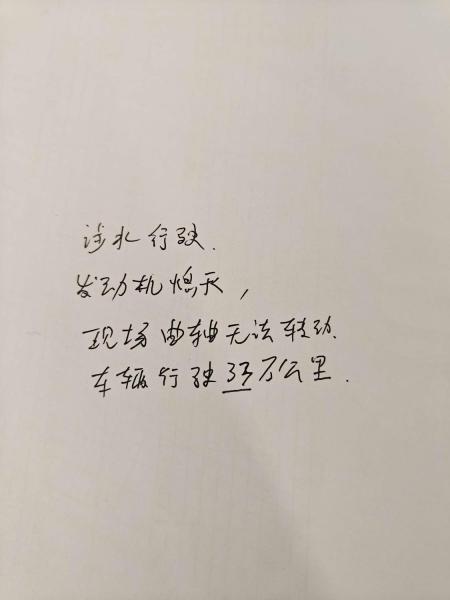 涉水行驶.
发动机熄灭,
现场曲轴无法转动.
车辆行驶 万公里.